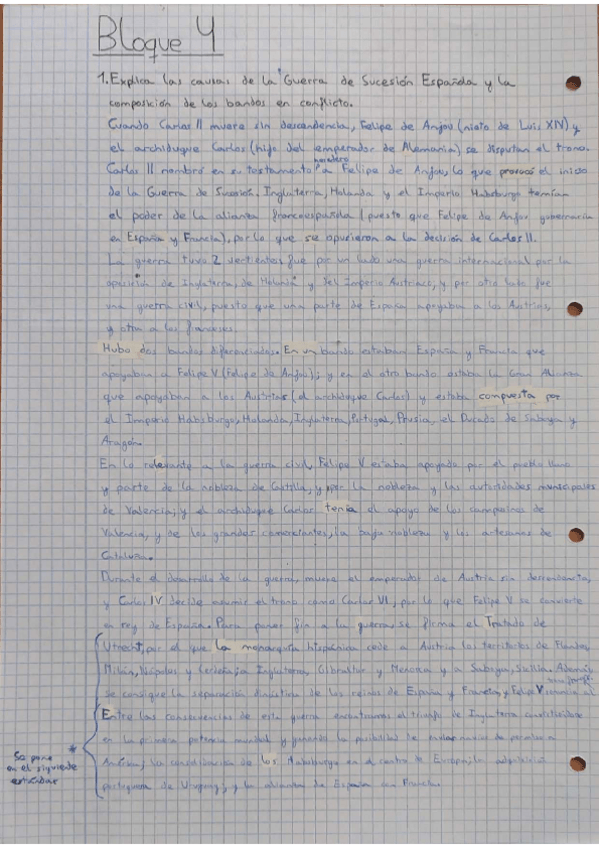 Bloque 4
1. Explica las causas de la Guerra de Sucesión Española y la
composición de los bandos en conflicto.
Cuando Carlos II muere sin descendencia, Felipe de Anjou (nieto de Luis XIV) y
el archiduque Carlos (hijo del emperador de Alemania) se disputan el trono.
heredero
Carlos II nombró en su testamento a Felipe de Anjou, lo que provocó el inicio
de la Guerra de Sucesión. Inglaterra, Holanda y el Imperio Habsburgo temían
el poder de la alianza francoespañola (puesto que Felipe de Anjou gobernaría
en España y Francia), por lo que se opusieron a la decisión de Carlos II.
La guerra tuvo 2 vertientes: fue por un lado una guerra internacional por la
oposición de Inglaterra, de Holanda y del Imperio Austriaco, y por otro lado fue
una guerra civil, puesto que una parte de España apoyaba a los Austrias,
y otra a los franceses.
Hubo dos bandos diferenciados. En un bando estaban España y Francia que
apoyaban a Felipe V (Felipe de Anjou); y en el otro bando estaba la Gran Alianza
que apoyaban a los Austrias (al archiduque Carlos) y estaba compuesta por
el Imperio Habsburgo, Holanda, Inglaterra, Portugal, Prusia, el Ducado de Saboya y
Aragón.
En lo relevante a la guerra civil, Felipe V estaba apoyado por el pueblo llano
y parte de la nobleza de Castilla, y por la nobleza y las autoridades municipales
de Valencia; y el archiduque Carlos tenía el apoyo de los campesinos de
Valencia, y de los grandes comerciantes, la baja nobleza y los artesanos de
Cataluña.
Durante el desarrollo de la guerra, muere el emperador de Austria sin descendencia,
y Carlos IV decide asumir el trono como Carlos VI, por lo que Felipe V se convierte
en rey de España. Para poner fin a la guerra, se firma el Tratado de
Utrecht, por el que la monarquía hispánica cede a Austria los territorios de Flandes,
Milán, Nápoles y Cerdeña; a Inglaterra, Gibraltar y Menorca y a Saboya, Sicilia. Además,
se consigue la separación dinástica de los reinos de España y Francia, y Felipe V renuncia al
Entre las consecuencias de esta guerra encontramos el triunfo de Inglaterra constituyéndose
en la primera potencia mundial y ganando la posibilidad de
América; la consolidación de los Habsburgo en el centro de Europa; la adquisición
portuguesa de Uruguay; y la alianza de España con Francia.
* Se pone
en el siguiente
estándar